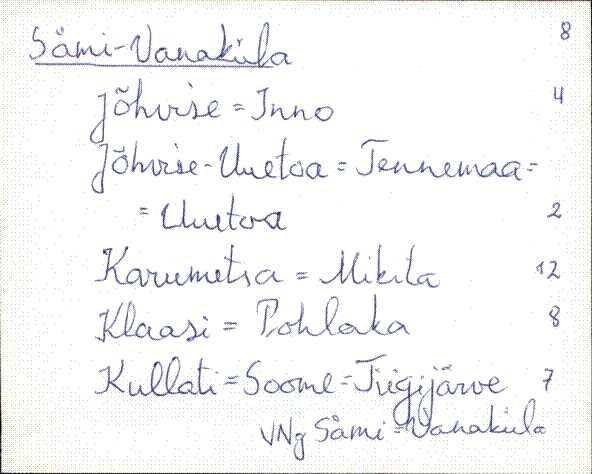 Sämi-Vanaküla 8
Jõhvise = Inno 4
Jõhvise-Uuetoa = Tennemaa =
= Uuetoa 2
Karumetsa = Mikita 12
Klaasi = Pohlaka 8
Kullati = Soome = Tiigijärve 7
VNg Sämi = Vanaküla